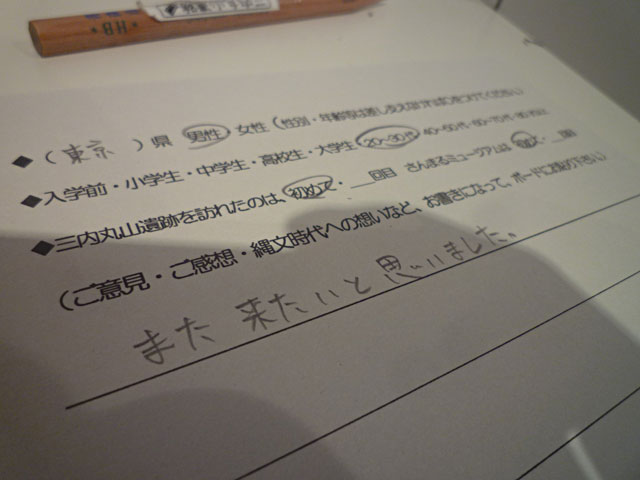 HB
◆(東京)県 男性・女性(性別・年齢等は差し支えなければ○をつけてください)
◆入学前・小学生・中学生・高校生・大学生 20~30代
◆三内丸山遺跡を訪れたのは、初めて・__回目 さんまるミュージアムは 初めて・__回目
(ご意見・ご感想・縄文時代への想いなど、お書きになって、ボードにお貼り下さい)
また 来たいと 思いました。